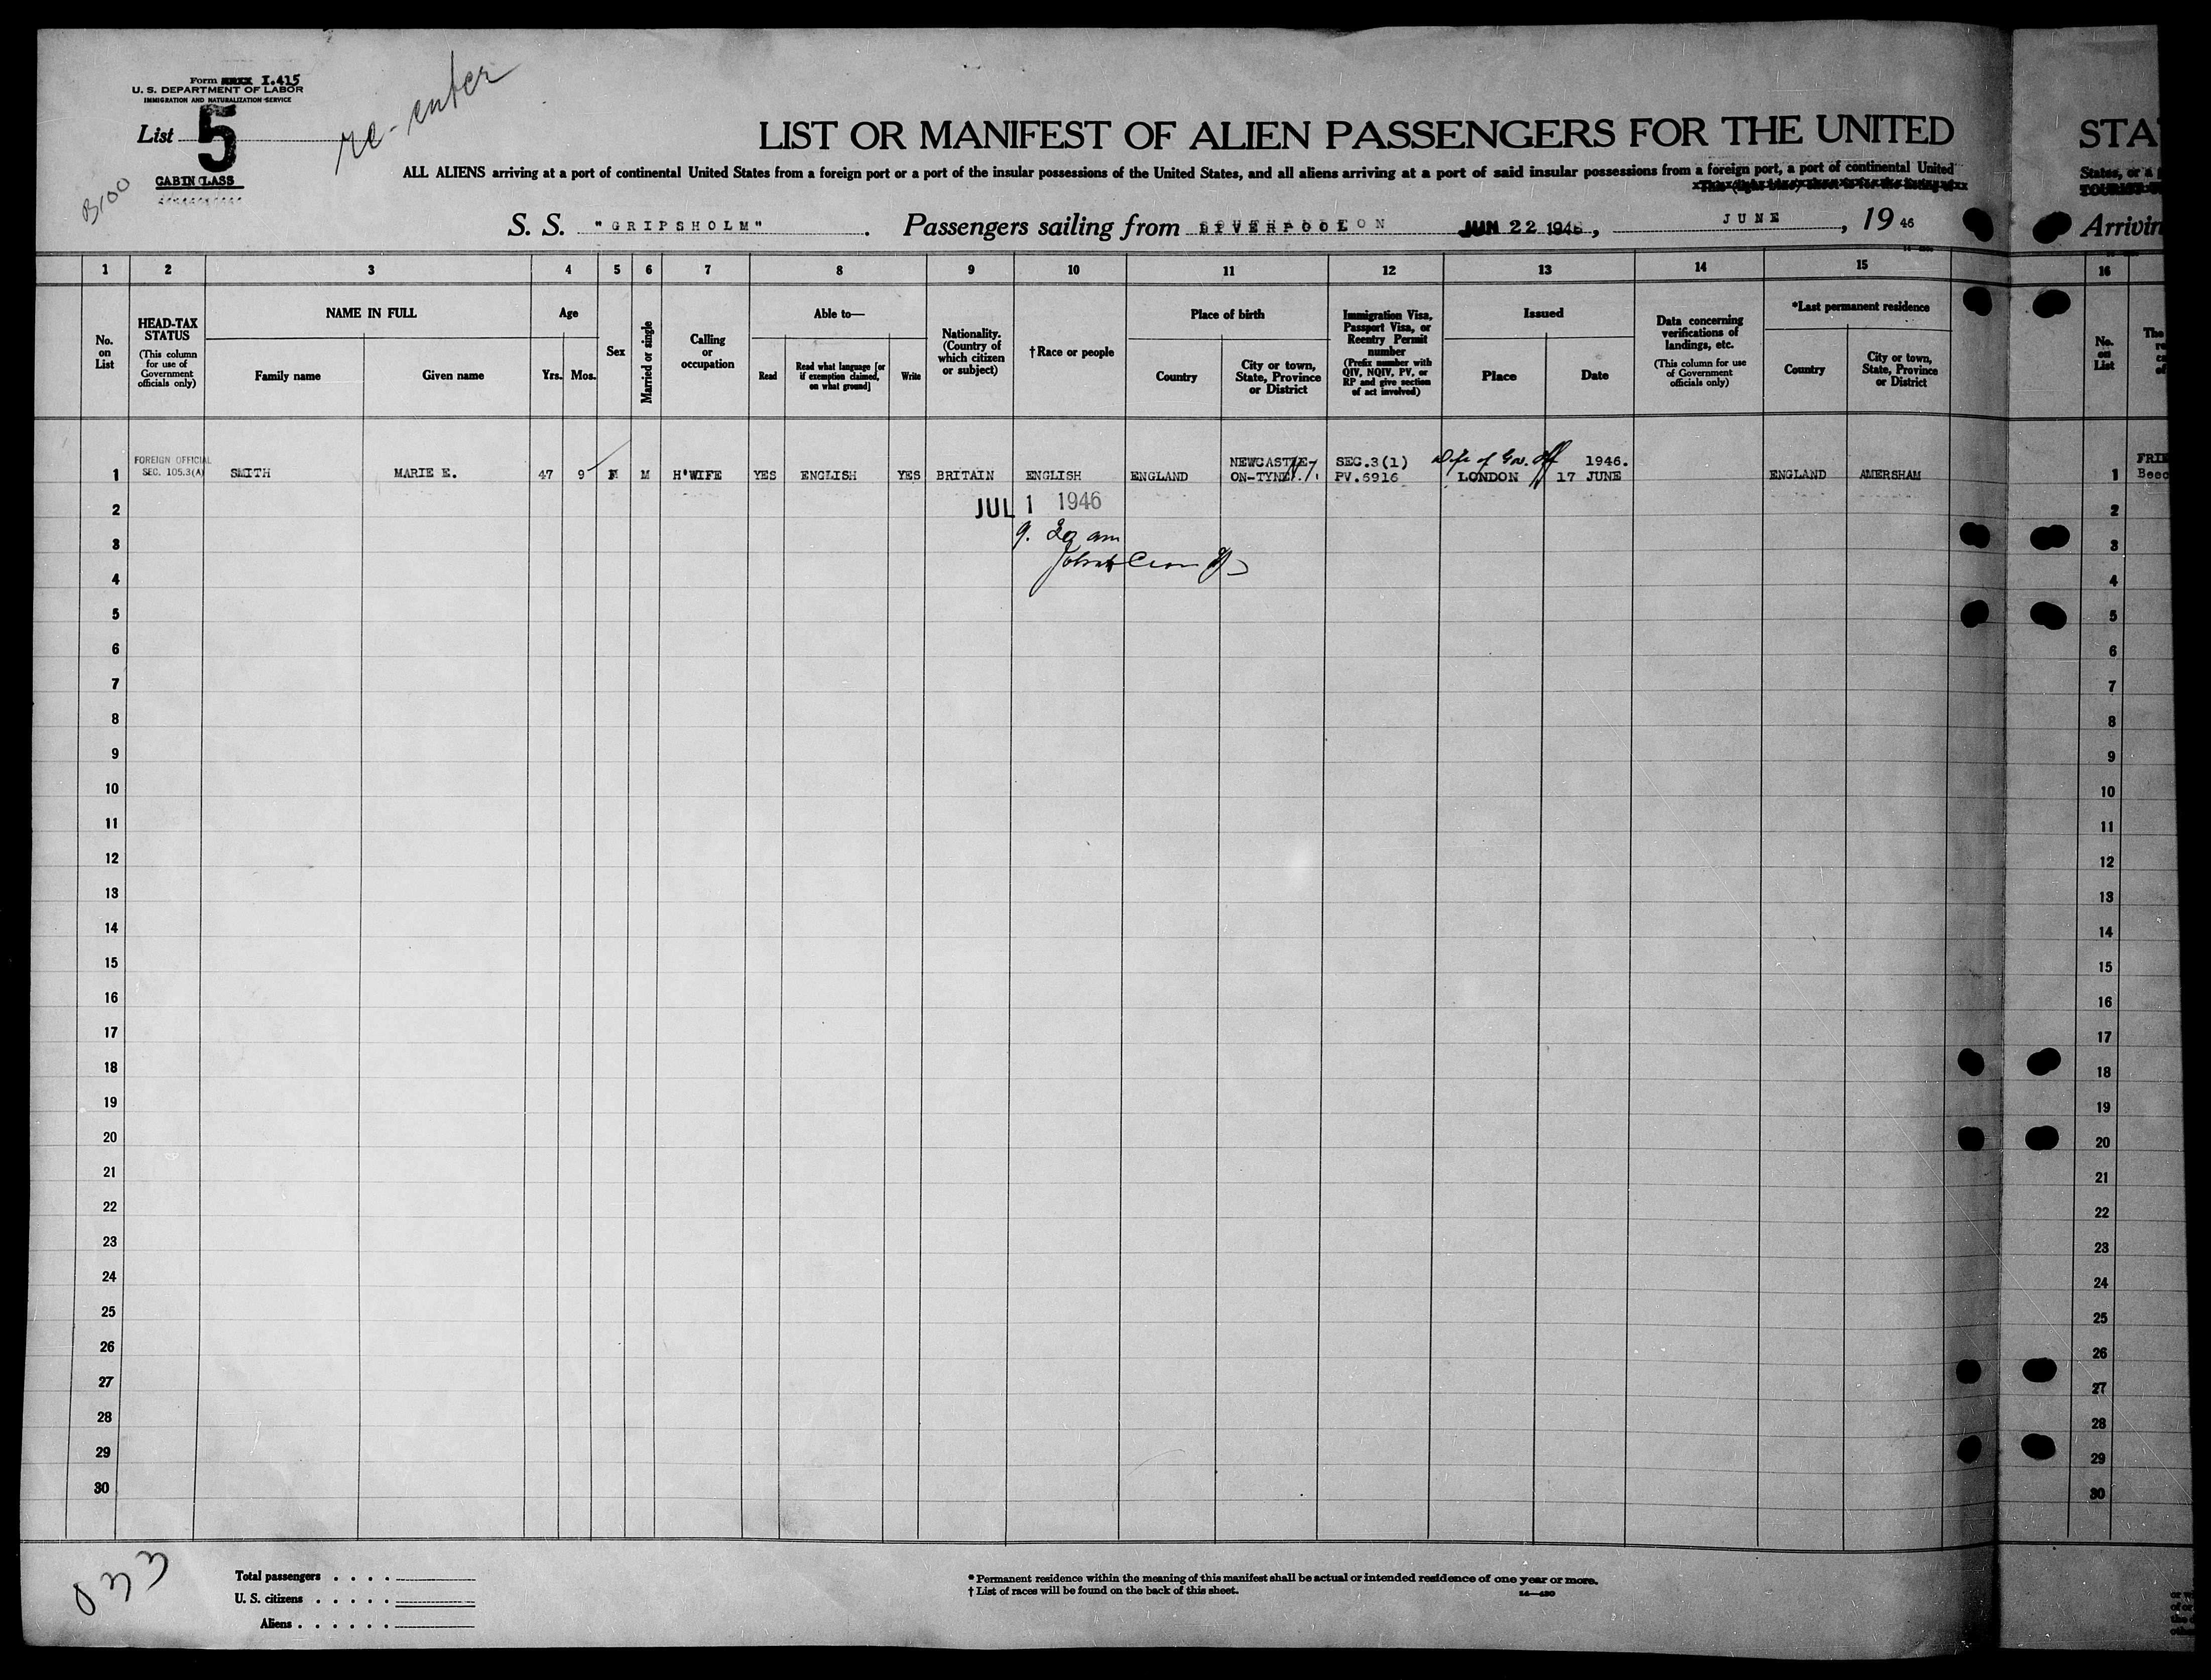 Form I.415
U. S. DEPARTMENT OF LABOR
IMMIGRATION AND NATURALIZATION SERVICE
List 5
CABIN CLASS
re-enter
B100
LIST OR MANIFEST OF ALIEN PASSENGERS FOR THE UNITED
STA
ALL ALIENS arriving at a port of continental United States from a foreign port or a port of the insular possessions of the United States, and all aliens arriving at a port of said insular possessions from a foreign port, a port of continental United
States, or a
S. S. "GRIPSHOLM". Passengers sailing from LIVERPOOL JUN 22 1946, JUNE, 19 46
Arrivin
1 2 3 4 5 6 7 8 9 10 11 12 13 14 15 16
No. on List
HEAD-TAX STATUS
(This column for use of Government officials only)
NAME IN FULL
Family name
Given name
Age
Yrs.
Mos.
Sex
Married or single
Calling or occupation
Able to—
Read
Read what language [or if exemption claimed, on what ground]
Write
Nationality. (Country of which citizen or subject)
†Race or people
Place of birth
Country
City or town, State, Province or District
Immigration Visa, Passport Visa, or Reentry Permit number
(Prefix number with QIV, NQIV, PV, or RP and give section of act involved)
Issued
Place
Date
Data concerning verifications of landings, etc.
(This column for use of Government officials only)
*Last permanent residence
Country
City or town, State, Province or District
No. on List
The
FOREIGN OFFICIAL
SEC. 105.3(A)
NEWCASTLE
SEC.3(1)
Wife of Gov. Off
1946.
FRIE
1 SMITH MARIE E. 47 9 F M H'WIFE YES ENGLISH YES BRITAIN ENGLISH ENGLAND ON-TYNE PV.6916 LONDON 17 JUNE ENGLAND AMERSHAM 1 Beec
JUL 1 1946
2 2
9. 30 am
3 3
4 4
5 5
6 6
7 7
8 8
9 9
10 10
11 11
12 12
13 13
14 14
15 15
16 16
17 17
18 18
19 19
20 20
21 21
22 22
23 23
24 24
25 25
26 26
27 27
28 28
29 29
30 30
Total passengers . . . .
U. S. citizens . . . . .
Aliens . . . . . .
* Permanent residence within the meaning of this manifest shall be actual or intended residence of one year or more.
† List of races will be found on the back of this sheet.